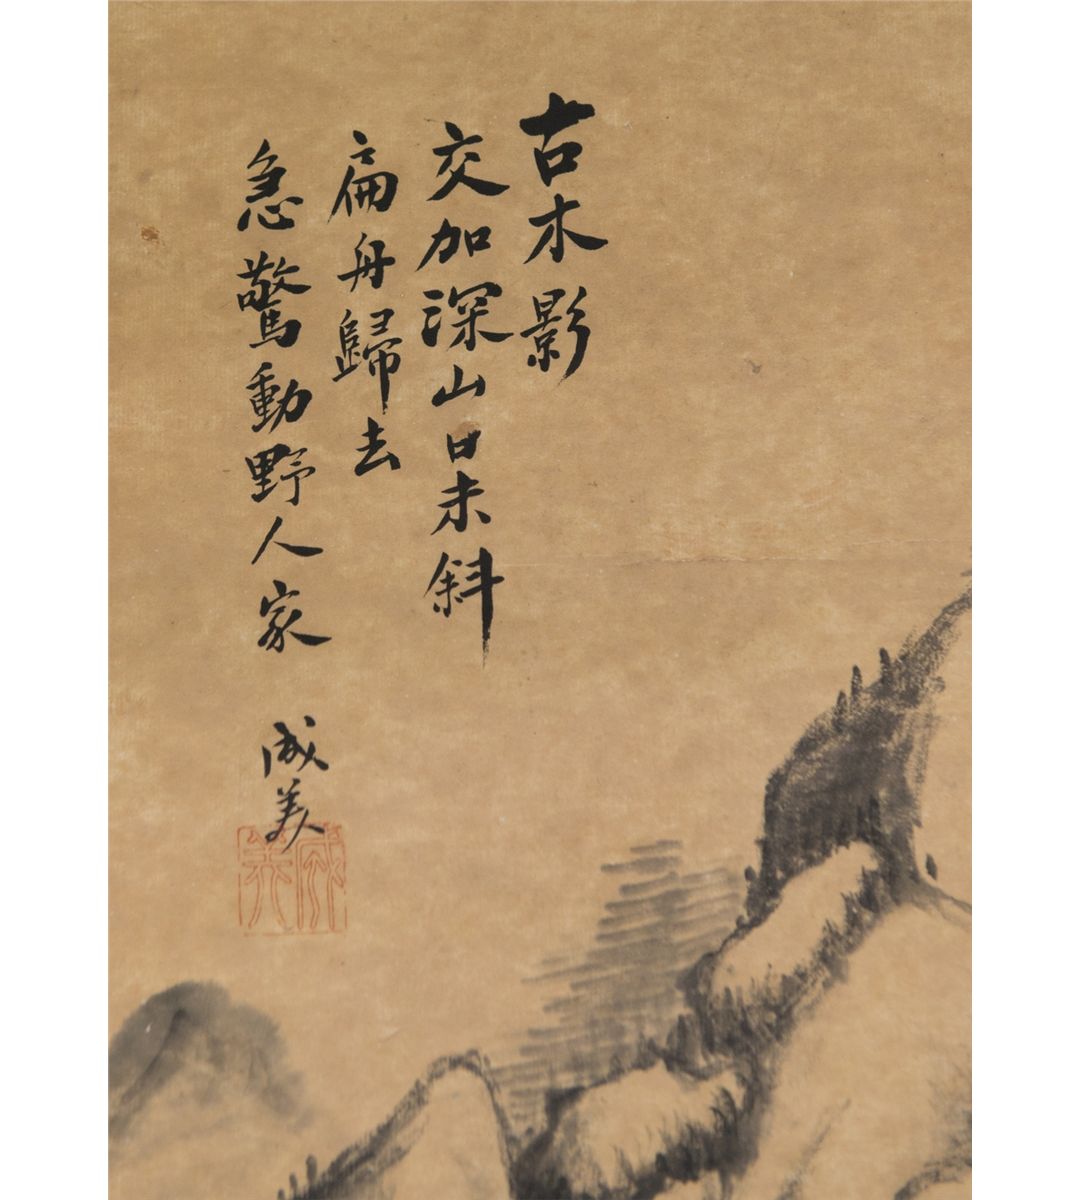 古木影
交加深山日未斜
扁舟歸去
急驚動野人家
成美
成美